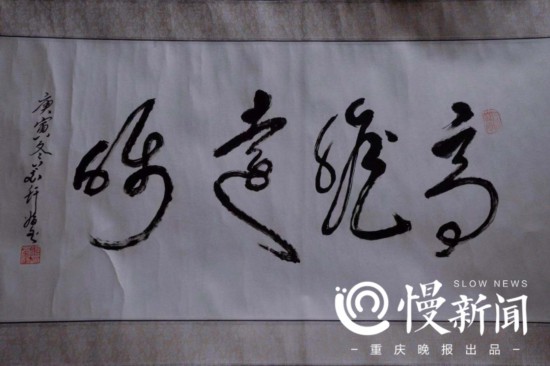 高瞻远瞩
庚寅冬
SLOW NEWS
慢新闻
-重庆晚报出品-